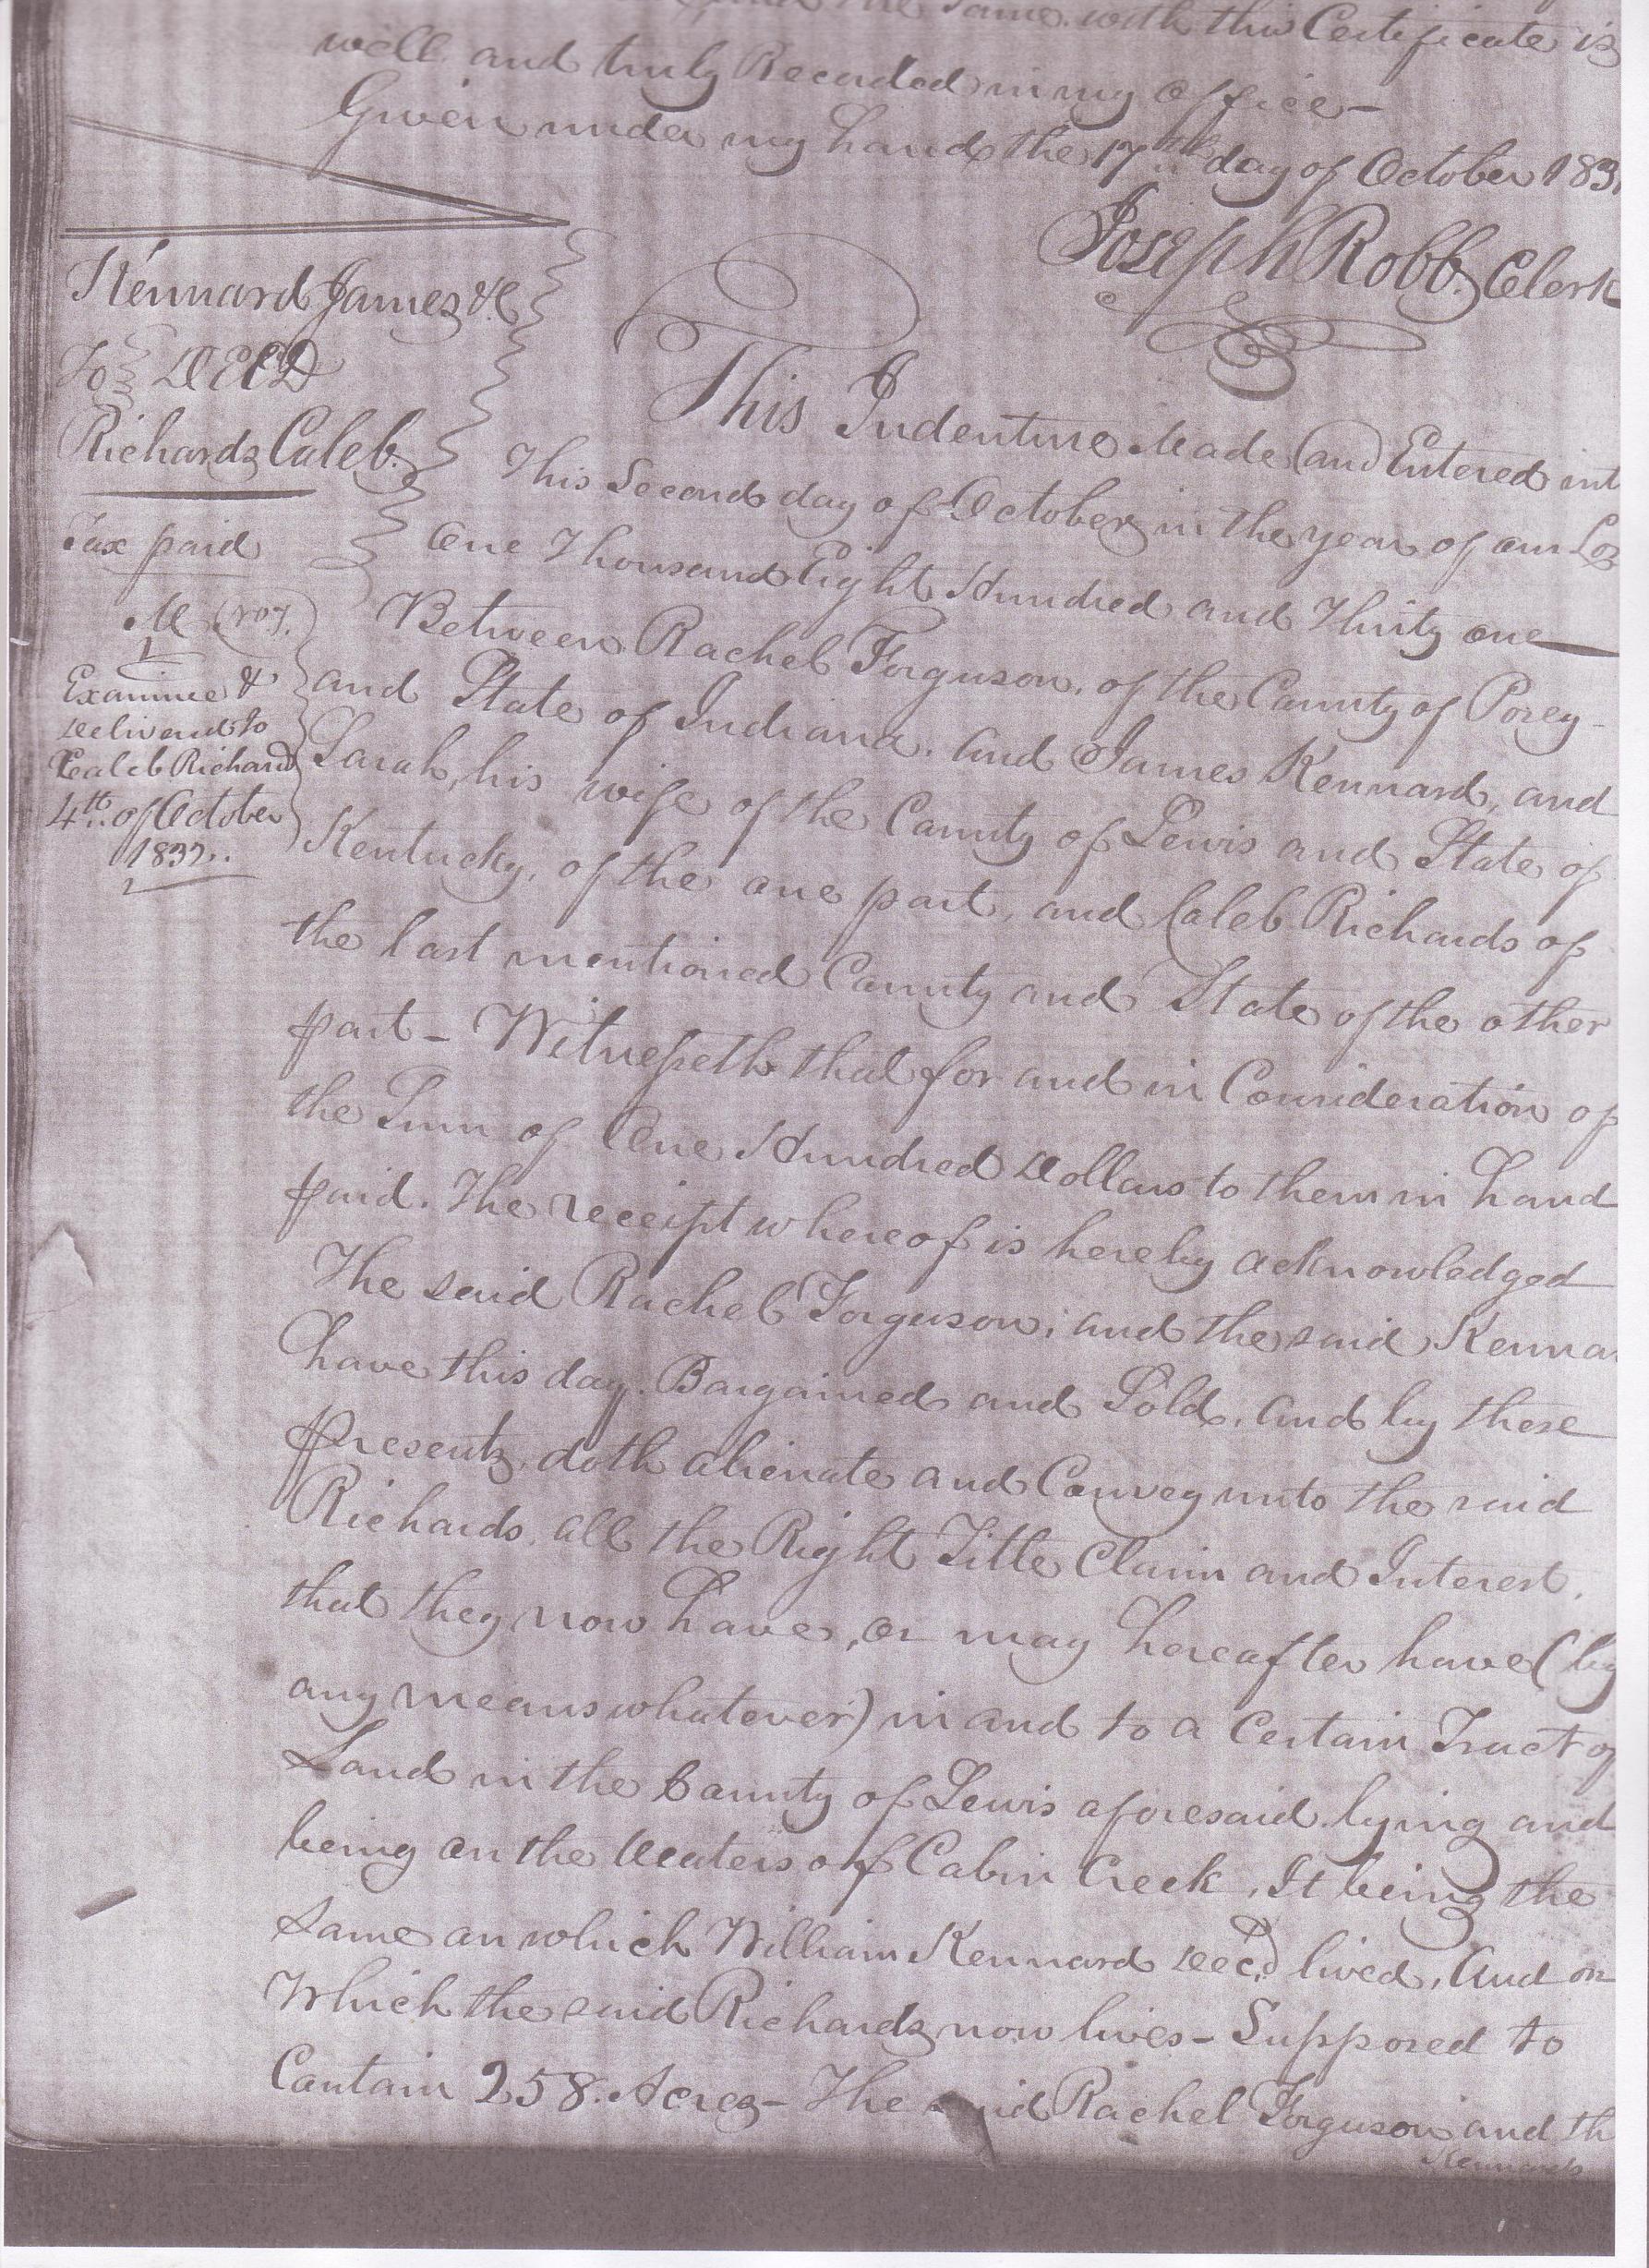 the same with this Certificate is
well and truly Recorded in my office –
Given under my hand the 17th day of October 183
Joseph Robb. Clerk
Kennard James &C
To DEED
Richards Caleb.
Tax paid
Examined &
Delivered to
Caleb Richard
4th. of October
1832.
This Indenture Made and Entered int
This Second day of October in the year of our Lor
One Thousand Eight Hundred and Thirty one
Between Rachel Forguson, of the County of Posey
and State of Indiana. and James Kennard, and
Sarah, his wife of the County of Lewis and State of
Kentucky, of the one part, and Caleb Richards of
the last mentioned County and State of the other
part – Witnesseth that for and in Consideration of
the Sum of One Hundred Dollars to them in hand
paid. The receipt whereof is hereby acknowledged
The said Rachel Forguson, and the said Kenna
have this day. Bargained and Sold, and by these
presents, doth alienate and Convey unto the said
Richards, all the Right Title Claim and Interest.
that they now have, or may hereafter have (by
any means whatever) in and to a Certain Tract of
Land in the County of Lewis aforesaid lying and
being on the Waters of Cabin Creek, It being the
same on which William Kennard Decd. lived, And on
Which the said Richards now lives – Supposed to
Contain 258. Acres – The said Rachel Forguson and th
Kennards